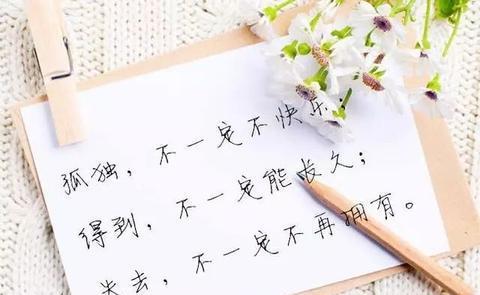 孤独，不一定不快乐
得到，不一定能长久；
失去，不一定不再拥有。